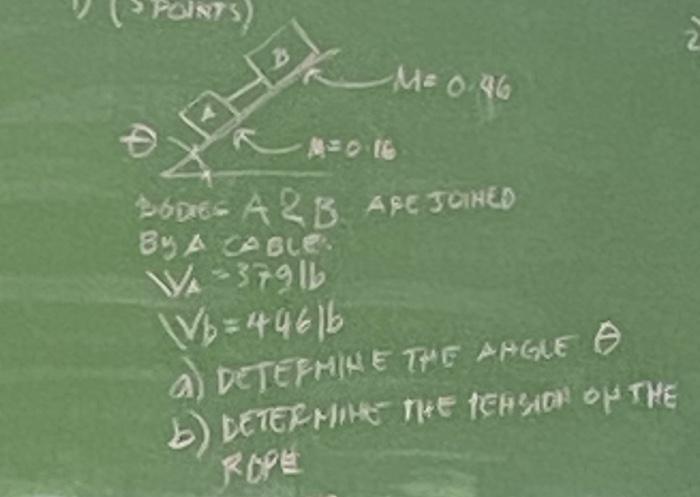 1) (5 POINTS)
2
B
M= 0.46
A
θ
M=0.16
BODIES A & B ARE JOINED
BY A CABLE.
WA = 379 lb
Wb = 446 lb
a) DETERMINE THE ANGLE θ
b) DETERMINE THE TENSION ON THE
ROPE